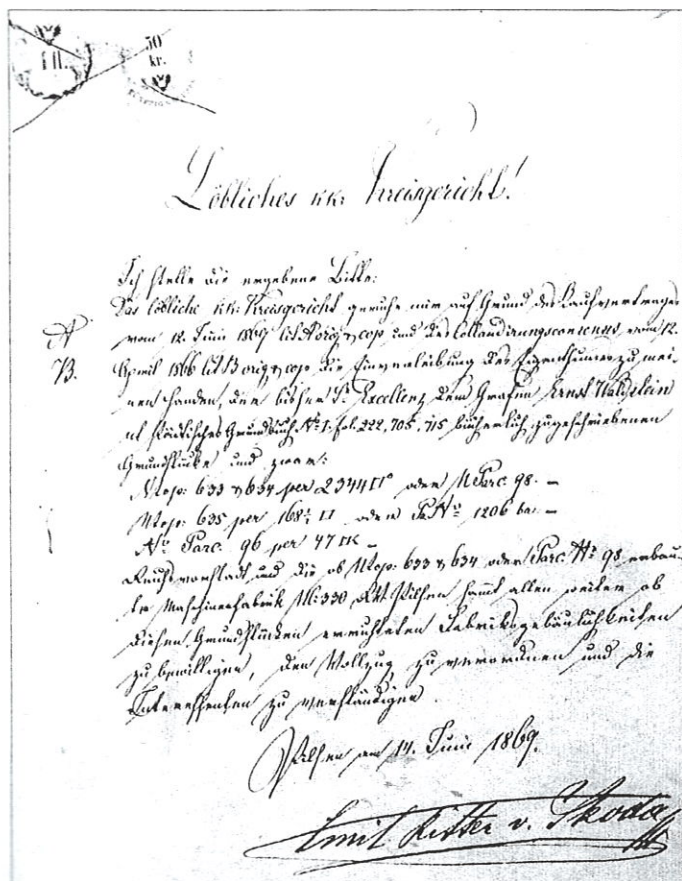 1 fl.
50
kr.
Löbliches kk: Kreisgericht!
Ich stelle die ergebene Bitte:
Das löbliche kk: Kreisgericht geruhe mir auf Grund des Kaufvertrages
A vom 12. Juni 1869 lit A orig & cop und des vom 12.
B. April 1866 lit B orig & cop die Einverleibung des Eigenthumes zu mei-
nen Handen, der bisher Sr Excellenz dem Grafen Ernst Waldstein
Städtisches Grundbuch No 1. fol. 222, 705, 715 bücherlich zugeschriebenen
Grundstücke und zwar:
633 & 634 per 2344 oder Parc. 98. –
635 per oder No 1206 –
No Parc. 96 per 47 –
Reichsvorstadt und die ob 633 & 634 oder Parc. No 98 erbau-
te Maschinenfabrik 330 Pilsen sammt allen weiter ob
diesen Grundstücken errichteten Fabriksgebäulichkeiten
zu bewilligen, den Vollzug zu verordnen und die
Interessenten zu verständigen.
Pilsen am 14. Juni 1869.
Emil Ritter v. Skoda